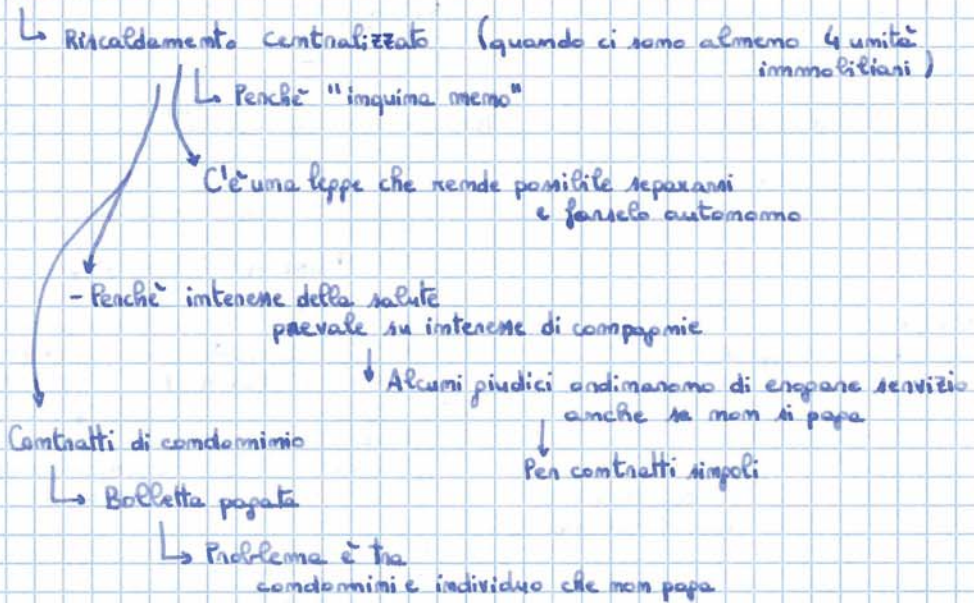 Riscaldamento centralizzato (quando ci sono almeno 4 unità
immobiliari)
Perchè "inquina meno"
C'è una legge che rende possibile separarsi
e farselo autonomo
- Perchè interesse della salute
prevale su interesse di compagnie
Alcuni giudici ordinarono di erogare servizio
anche se non si paga
Per contratti singoli
Contratti di condominio
Bolletta pagata
Problema è tra
condomini e individuo che non paga